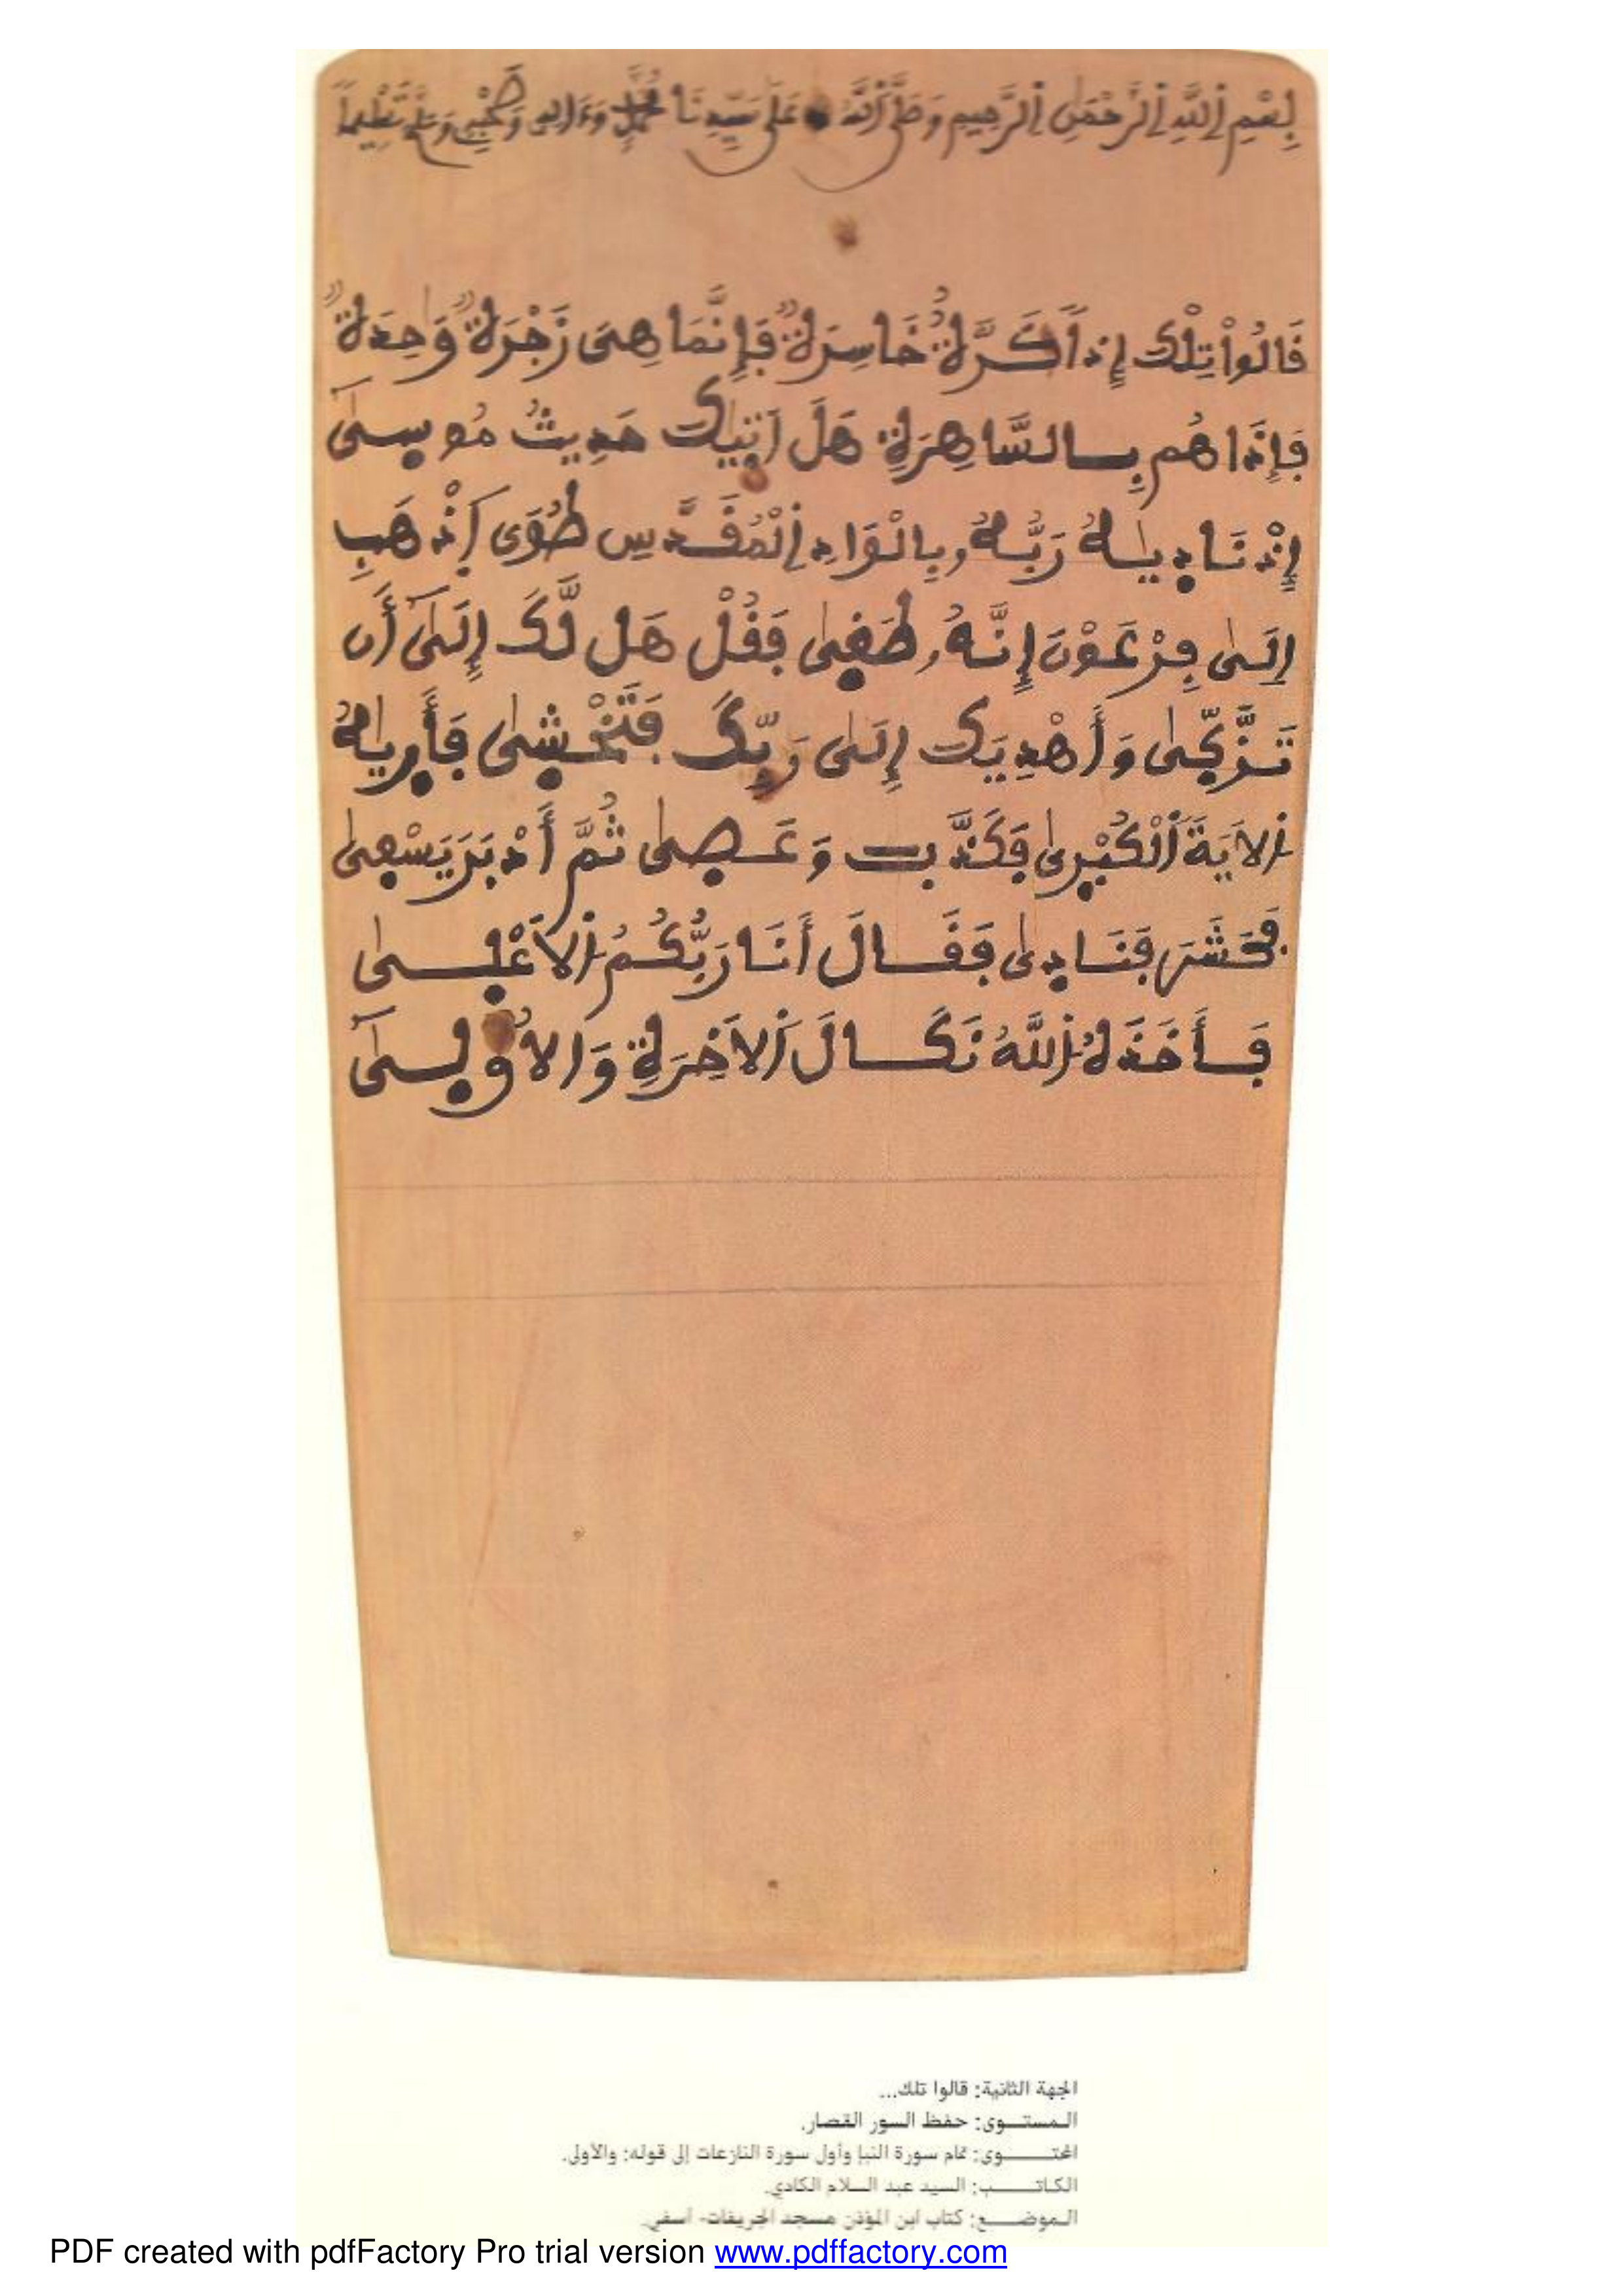 بِسْمِ اِ۬للَّهِ اِ۬لرَّحْمَٰنِ اِ۬لرَّحِيمِ وَصَلَّى اَ۬للَّهُ عَلَىٰ سَيِّدِنَا مُحَمَّدٍ وَءَالِهِ وَصَحْبِهِ وَسَلَّمَ تَسْلِيماً
قَالُواْ تِلْكَ إِذاٗ كَرَّةٌ خَاسِرَةٞ فَإِنَّمَا هِىَ زَجْرَةٞ وَٰحِدَةٞ
فَإِذَا هُم بِالسَّاهِرَةِ هَلَ اَتٜيٰكَ حَدِيثُ مُوسٜىٰٓ
إِذْ نَادٜيٰهُ رَبُّهُۥ بِالْوَادِ اِ۬لْمُقَدَّسِ طُوَى اَ۪ذْهَبِ
اِلَىٰ فِرْعَوْنَ إِنَّهُۥ طَغٜىٰ فَقُلْ هَل لَّكَ إِلَىٰٓ أَن
تَزَّكّٜىٰ وَأَهْدِيَكَ إِلَىٰ رَبِّكَ فَتَخْشٜىٰ فَأَرٜيٰهُ
اُ۬لَايَةَ اَ۬لْكُبْرٜىٰ فَكَذَّبَ وَعَصٜىٰ ثُمَّ أَدْبَرَ يَسْعٜىٰ
فَحَشَرَ فَنَادٜىٰ فَقَالَ أَنَا رَبُّكُمُ اُ۬لَاعْلٜىٰ
فَأَخَذَهُ اُ۬للَّهُ نَكَالَ اَ۬لَاخِرَةِ وَالُاولٜىٰٓ
الجهة الثانية: قالوا تلك...
المستوى: حفظ السور القصار.
المحتوى: تمام سورة النبإ وأول سورة النازعات إلى قوله: والأولى.
الكاتب: السيد عبد السلام الكادي.
الموضع: كتاب ابن المؤذن مسجد الجريفات- آسفي.
PDF created with pdfFactory Pro trial version www.pdffactory.com